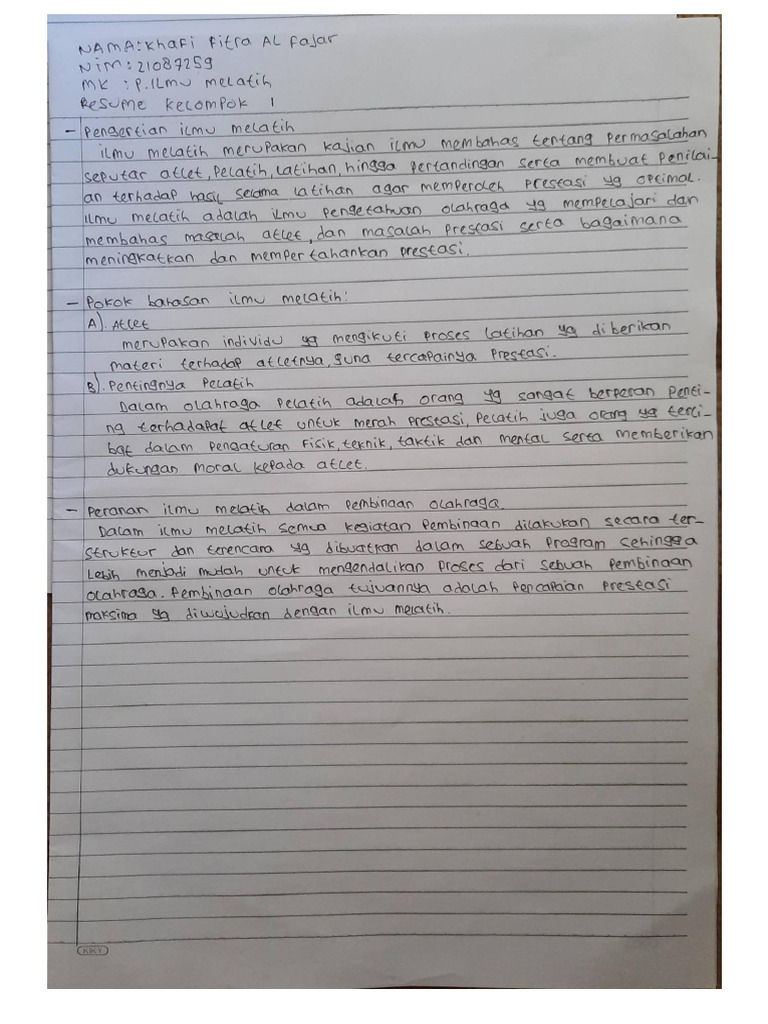 NAMA: Khafi Fitra AL Fajar
NIM : 21087259
MK : P. ILmu melatih
Resume Kelompok 1
- Pengertian ilmu melatih
ilmu melatih merupakan kajian ilmu membahas tentang Permasalahan
seputar atlet, Pelatih, Latihan, hingga Pertandingan serta membuat Penilai-
an terhadap hasil selama latihan agar memperoleh Prestasi yg optimal.
ilmu melatih adalah ilmu Pengetahuan olahraga yg mempelajari dan
membahas masalah atlet, dan masalah Prestasi serta bagaimana
meningkatkan dan mempertahankan prestasi.
- Pokok bahasan ilmu melatih:
A). Atlet
merupakan individu yg mengikuti Proses Latihan yg diberikan
materi terhadap atletnya, guna tercapainya Prestasi.
B). Pentingnya Pelatih
Dalam olahraga Pelatih adalah orang yg sangat berperan Penti-
ng terhadapat atlet untuk merah Prestasi, Pelatih juga orang yg terli-
bat dalam Pengaturan Fisik, teknik, taktik dan mental serta memberikan
dukungan moral kepada atlet.
- Peranan ilmu melatih dalam Pembinaan olahraga.
Dalam ilmu melatih semua kegiatan Pembinaan dilakukan secara ter-
struktur dan terencara yg dibuatkan dalam sebuah Program sehingga
Lebih menjadi mudah untuk mengendalikan Proses dari sebuah Pembinaan
olahraga. Pembinaan olahraga tujuannya adalah Pencapaian Prestasi
maksima yg diwujudkan dengan ilmu melatih.
KIKY